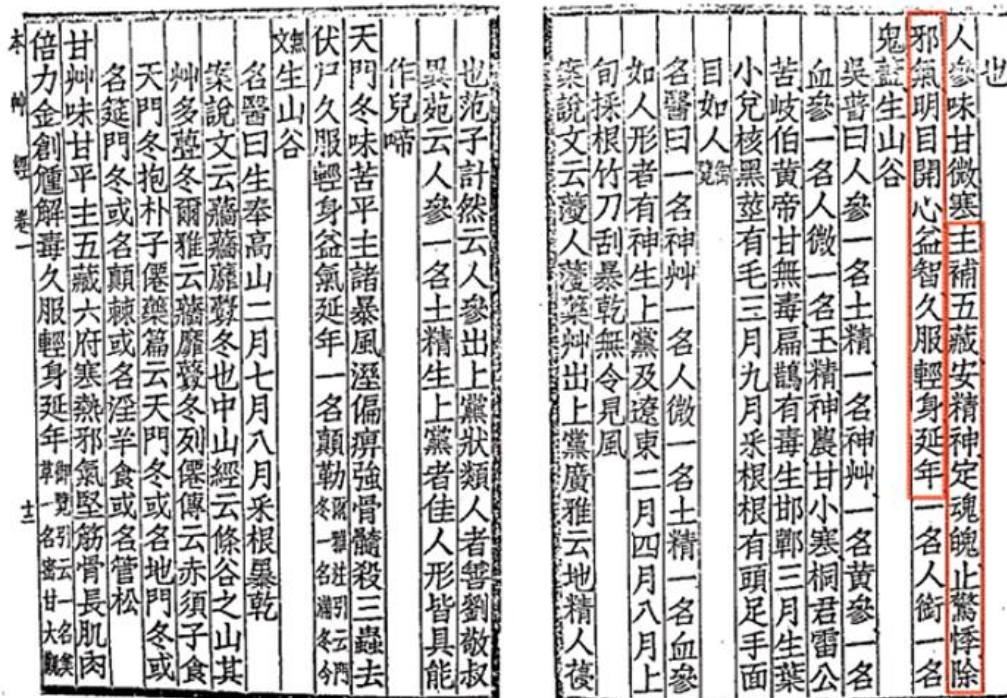 也
人參味甘微寒主補五藏安精神定魂魄止驚悸除
邪氣明目開心益智久服輕身延年一名人銜一名
鬼蓋生山谷
吳普曰人參一名土精一名神艸一名黄參一名
血參一名人微一名玉精神農甘小寒桐君雷公
苦岐伯黄帝甘無毒扁鵲有毒生邯鄲三月生葉
小兒核黑莖有毛三月九月采根根有頭足手面
目如人御覽
名醫曰一名神艸一名人微一名土精一名血參
如人形者有神生上黨及遼東二月四月八月上
旬採根竹刀刮暴乾無令見風
案說文云薓人薓藥艸出上黨廣雅云地精人薓
也范子計然云人參出上黨狀類人者善劉敬叔
異苑云人參一名土精生上黨者佳人形皆具能
作兒啼
天門冬味苦平主諸暴風溼偏痹強骨髓殺三蟲去
伏尸久服輕身益氣延年一名顛勒爾雅注引云門冬一名滿冬今
無文生山谷
名醫曰生奉高山二月七月八月采根暴乾
案說文云蘠蘠蘼虋冬也中山經云條谷之山其
艸多虋冬爾雅云蘠蘼虋冬列僊傳云赤須子食
天門冬抱朴子僊藥篇云天門冬或名地門冬或
名筵門冬或名顛棘或名淫羊食或名管松
甘艸味甘平主五藏六府寒熱邪氣堅筋骨長肌肉
倍力金創尰解毒久服輕身延年御覽引云一名美草一名密甘大觀
本艸經卷一